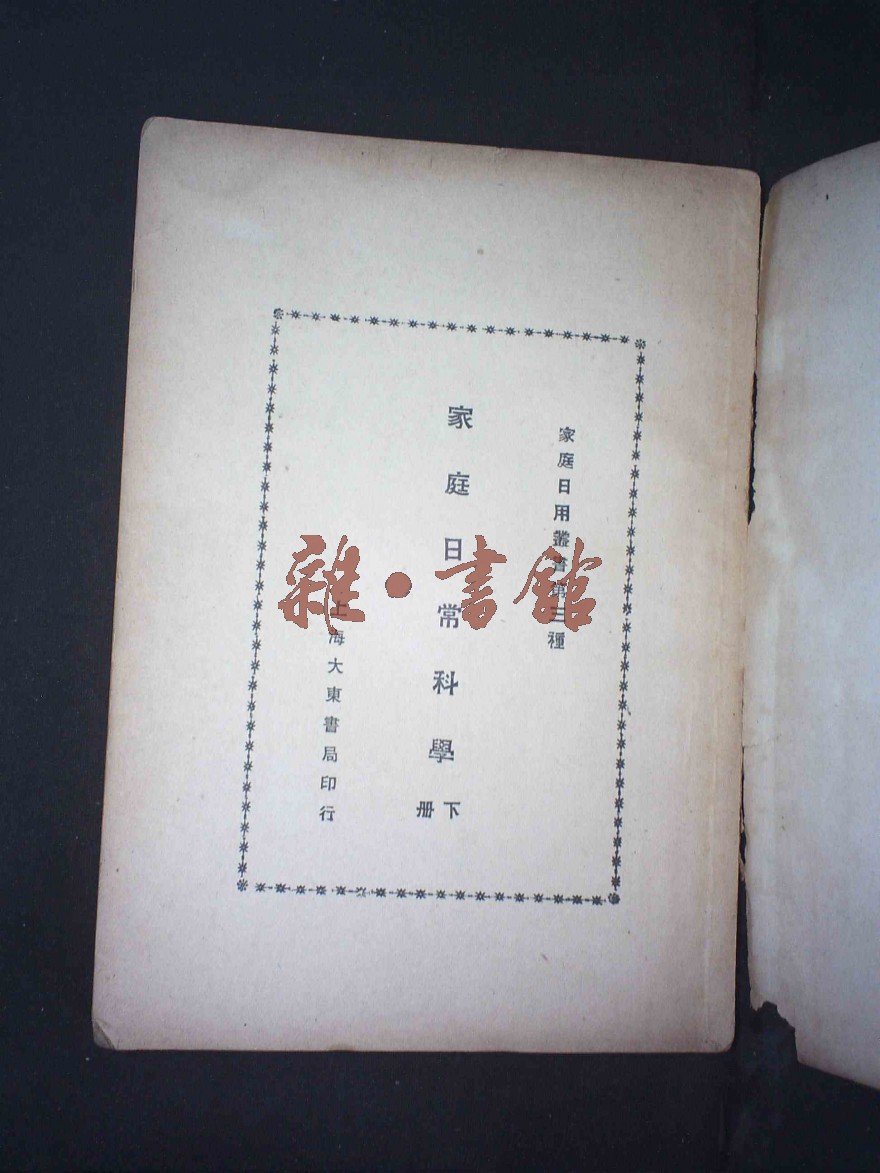 家庭日用叢書第三種
家庭日常科學
下册
上海大東書局印行
雜·書館